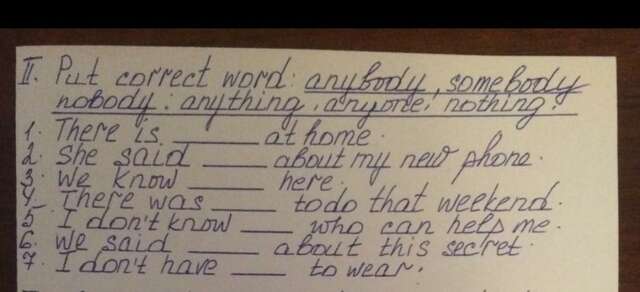 II. Put correct word: anybody, somebody
nobody; anything, anyone, nothing.
1. There is ______ at home.
2. She said ______ about my new phone.
3. We know ______ here.
4. There was ______ to do that weekend.
5. I don't know ______ who can help me.
6. We said ______ about this secret.
7. I don't have ______ to wear.